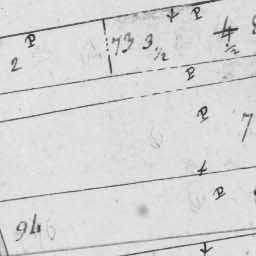 P
P
2
73 3 1/2
4 1/2
P
P
7
P
94